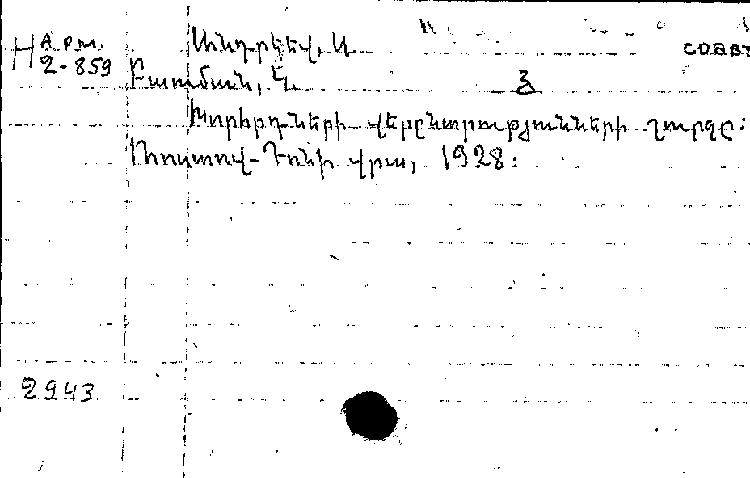 Н Арм. 2-859
Անդրեեվ, Ա
Բաուման, Կ. և
Խորհրդների վերընտրությունների շուրջը.
Ռոստով-Դոնի վրա, 1928:
2943